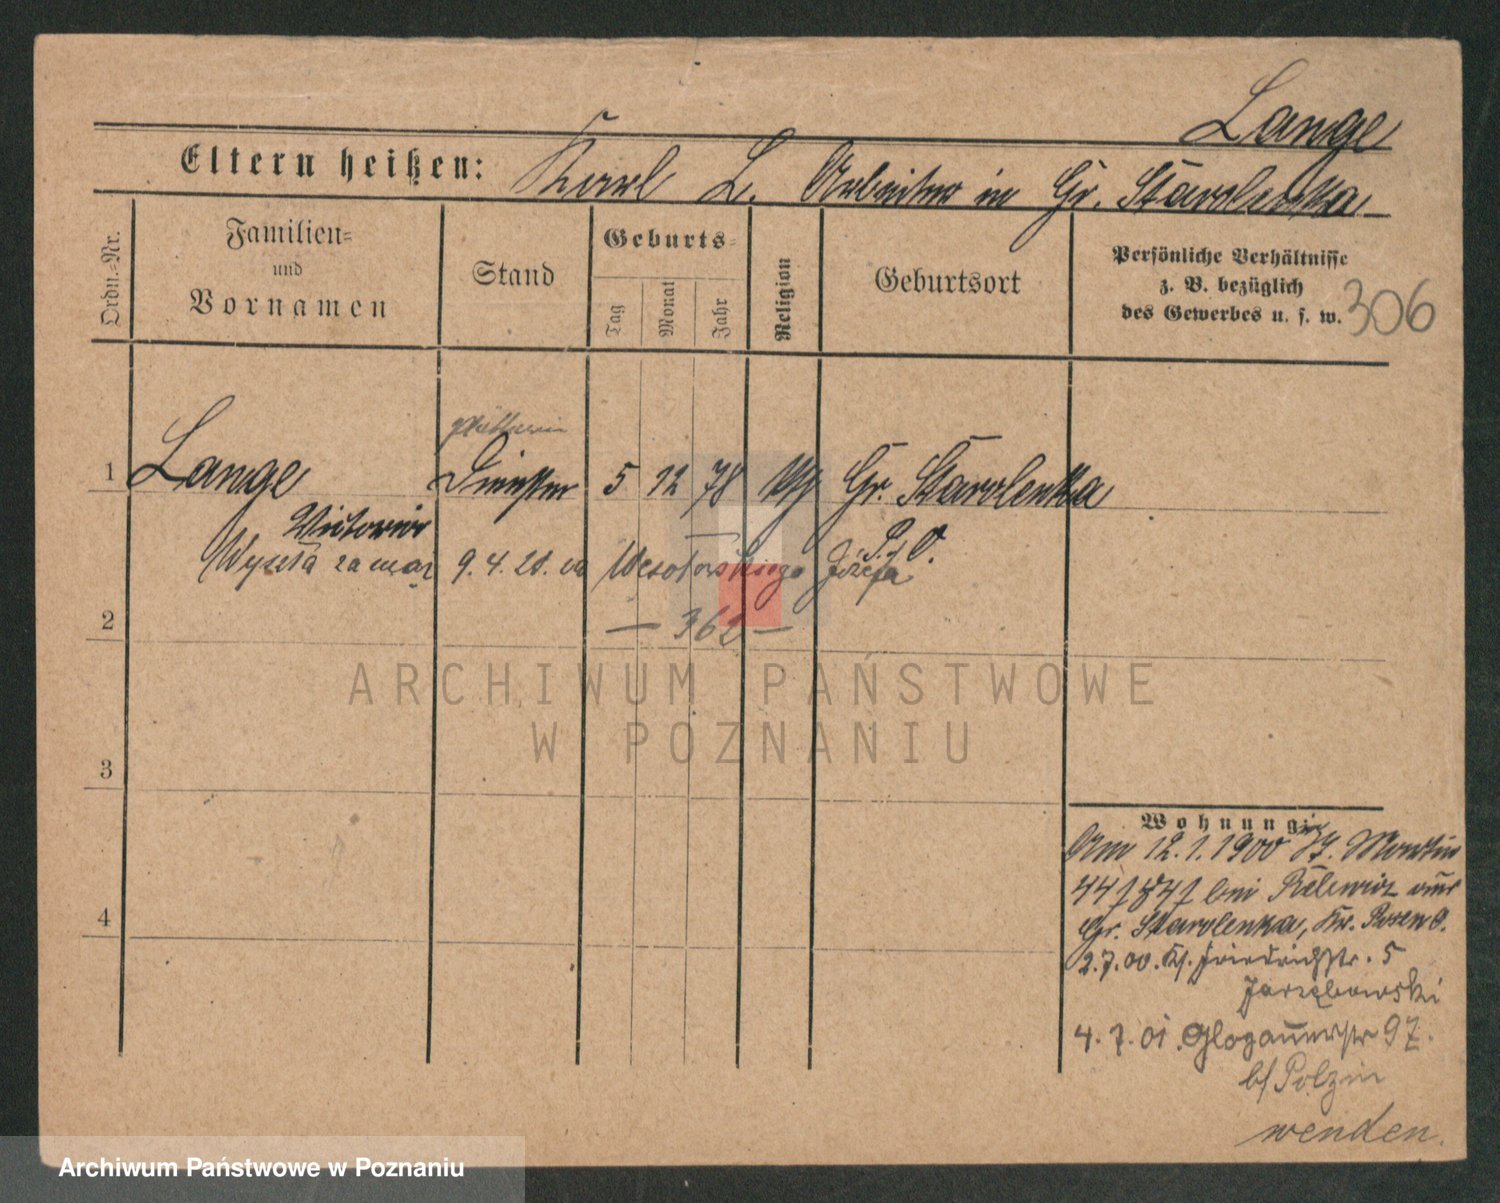 Lange
Eltern heißen: Karl L. Arbeiter in Gr. Starolenka
Ordn.-Nr.
Familien-
und
Vornamen
Stand
Geburts-
Tag
Monat
Jahr
Religion
Geburtsort
Persönliche Verhältnisse
z. B. bezüglich
des Gewerbes u. s. w.
306
Plätterin
1 Lange Dienstm 5 12 78 kth Gr. Starolenka
Victoria P. O.
Wyszła za mąż 9.4.21. za Wesołowskiego Józefa
2 — 362 —
ARCHIWUM PAŃSTWOWE
W POZNANIU
3
Wohnung:
Am 12.1.1900 St. Martin
4 bei aus
Gr. Starolenka, Kr. Posen O.
2.7.00. Kl. Friedrichstr. 5
Jarzębowski
4.7.01. Glogauerstr 97.
b/ Polzin
wenden.
Archiwum Państwowe w Poznaniu